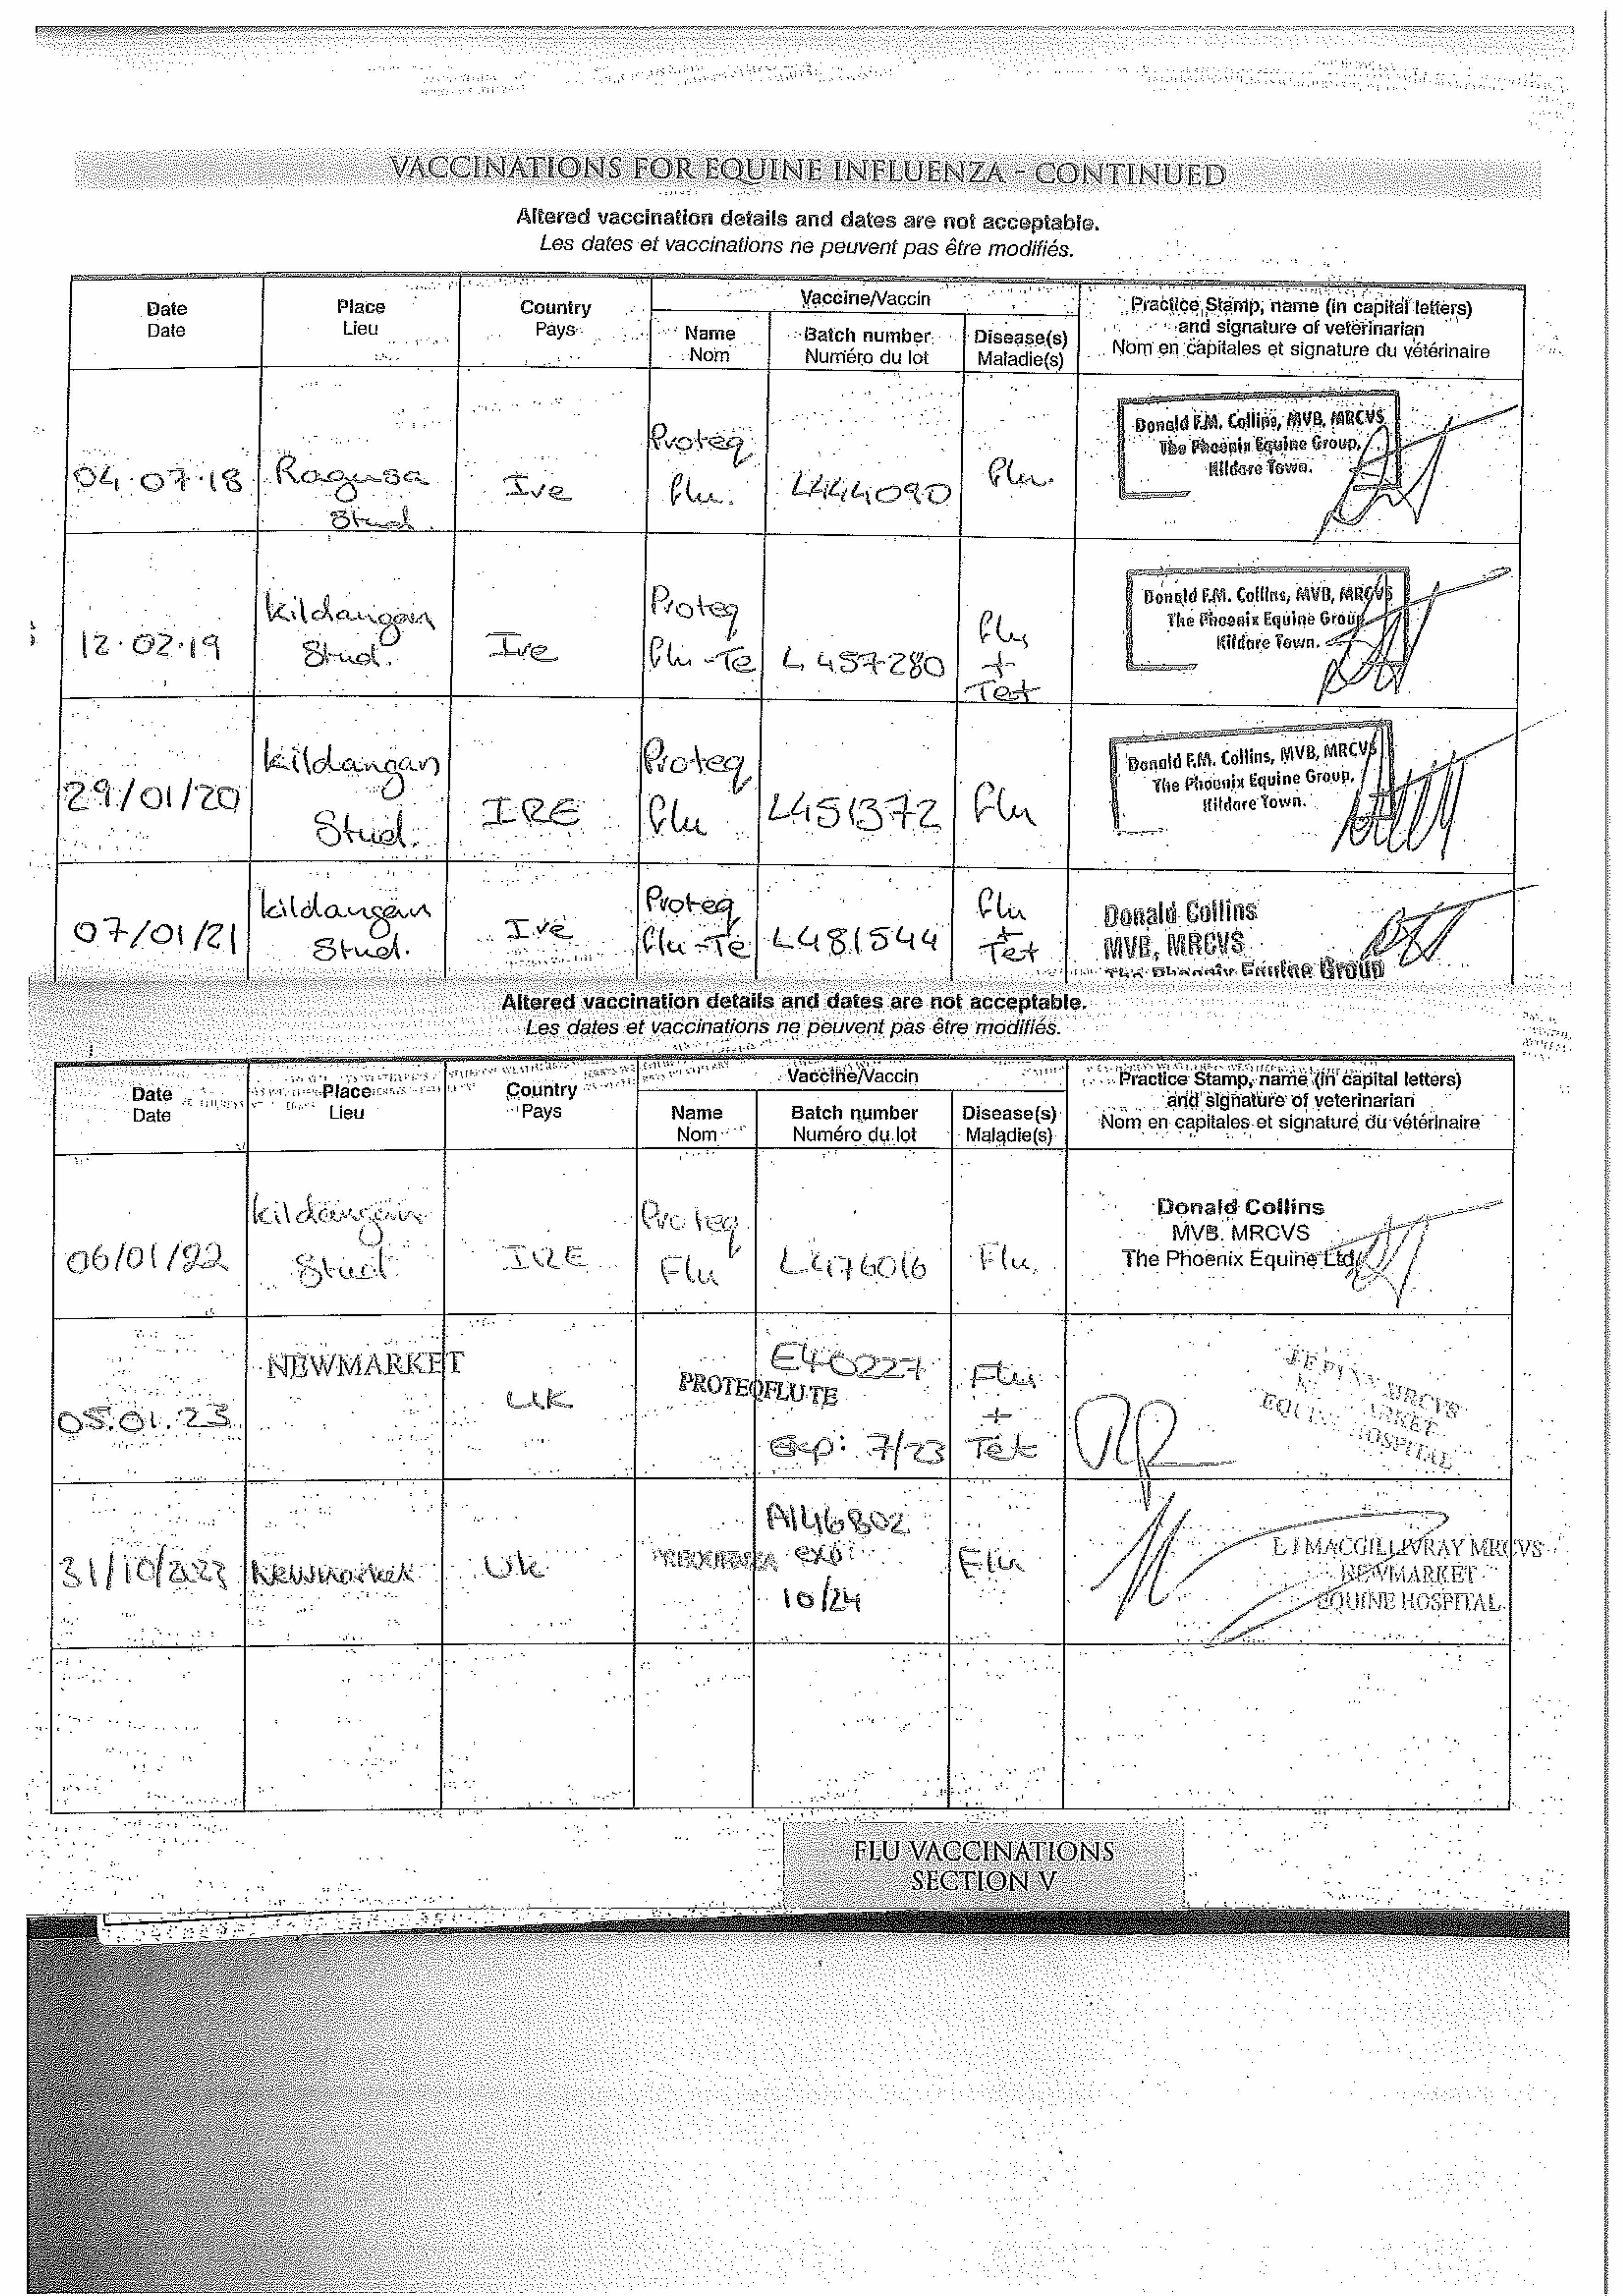 VACCINATIONS FOR EQUINE INFLUENZA - CONTINUED
Altered vaccination details and dates are not acceptable.
Les dates et vaccinations ne peuvent pas être modifiés.
Date Place Country Vaccine/Vaccin Practice Stamp, name (in capital letters)
Date Lieu Pays Name Batch number Disease(s) and signature of veterinarian
Nom Numéro du lot Maladie(s) Nom en capitales et signature du vétérinaire
04.07.18 Ragusa Stud. Ire Proteq Flu. L444090 Flu.
Donald F.M. Collins, MVB, MRCVS
The Phoenix Equine Group,
Kildare Town.
12.02.19 Kildangan Stud. Ire Proteq Flu-Te L457280 Flu + Tet
Donald F.M. Collins, MVB, MRCVS
The Phoenix Equine Group
Kildare Town.
29/01/20 Kildangan Stud. IRE Proteq Flu L451372 Flu
Donald F.M. Collins, MVB, MRCVS
The Phoenix Equine Group,
Kildare Town.
07/01/21 Kildangan Stud. Ire Proteq Flu-Te L481544 Flu + Tet
Donald Collins
MVB, MRCVS
The Phoenix Equine Group
Altered vaccination details and dates are not acceptable.
Les dates et vaccinations ne peuvent pas être modifiés.
Date Place Country Vaccine/Vaccin Practice Stamp, name (in capital letters)
Date Lieu Pays Name Batch number Disease(s) and signature of veterinarian
Nom Numéro du lot Maladie(s) Nom en capitales et signature du vétérinaire
06/01/22 Kildangan Stud. IRE Proteq Flu L476016 Flu.
Donald Collins
MVB. MRCVS
The Phoenix Equine Ltd
05.01.23 NEWMARKET UK PROTEQFLUTE E40227 Exp: 7/23 Flu + Tet
MRCVS
EQUINE HOSPITAL
31/10/2023 Newmarket Uk A146802 exp: 10/24 Flu
L J MACGILLIVRAY MRCVS
NEWMARKET
EQUINE HOSPITAL
FLU VACCINATIONS
SECTION V